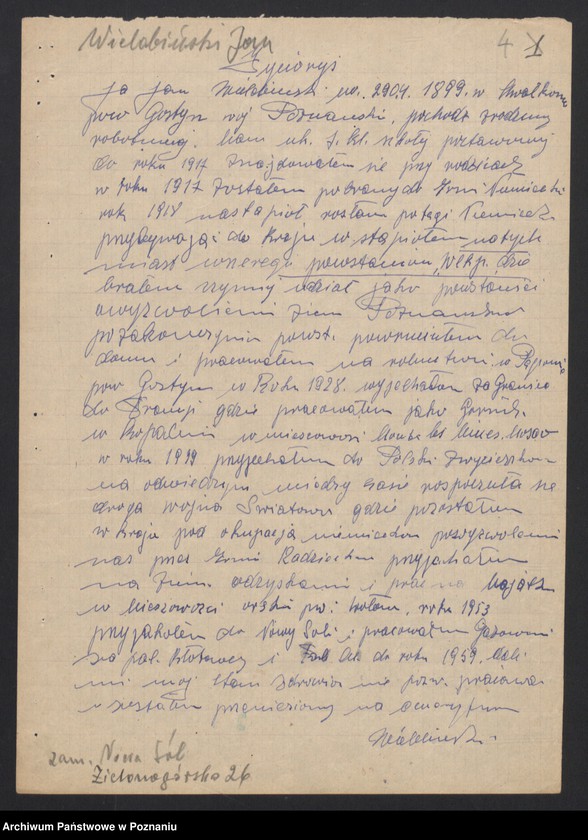 Wielebiński Jan
4 1
Życiorys
Ja Jan ur. 29.04. 1899. w
pow Gostyń woj Poznański, pochodzę z rodziny
robotniczej. Mam uk. 7. kl. szkoły podstawowej
do roku 1917 znajdowałem się przy rodzicach
w roku 1917 zostałem pobrany do Armi Niemiecki
rok 1918 nastąpioł rozłam potęgi Niemieckiej
przybywając do kraju wstąpiołem natych
miast w szeregi powstańców, Wlkp. gdzie
brałem czynny udział jako powstaniec
o wyzwolenie ziem Poznański
po zakończeniu powst. powróciłem do
domu i pracowałem na rolnictwie w
pow Gostyń w Roku 1928. wyjechałem za Granice
do Francji gdzie pracowałem jako Górnik
w kopalni w miejscowości les Mines
w roku 1939 przyjechałem do Polski
na odwiedzyny między czasie rozpoczęła się
droga wojna Światowa gdzie pozostałem
w kraju pod okupacją niemiecką po wyzwoleniu
nas przez Armi Radziecką przyjechałem
na ziem. odzyskane i prac na Majątk
w Mieszowości pow: . roku 1953
przyjechałem do Nowy Soli i pracowałem
za pal. i do roku 1959.
mi moj stan zdrowia nie pozw. pracować
i zostałem przeniesiony na emeryturę
zam. Nowa Sól
Zielonogórska 26
Archiwum Państwowe w Poznaniu